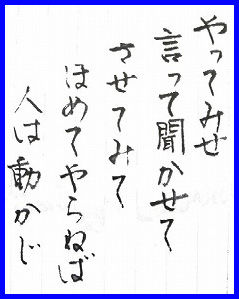 やってみせ
言って聞かせて
させてみて
ほめてやらねば
人は動かじ